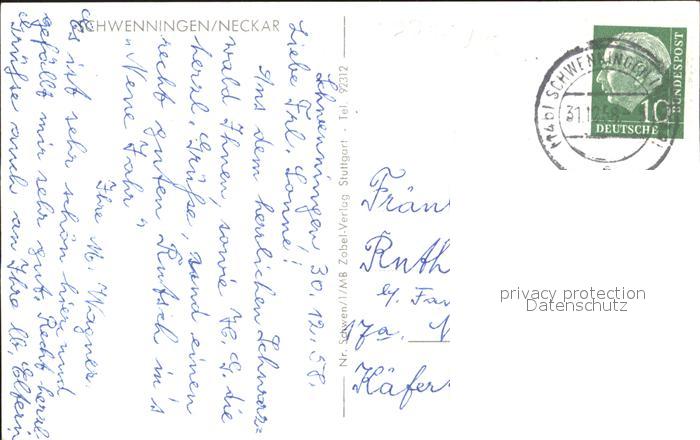 SCHWENNINGEN/NECKAR
Schwenningen, 30.12.58.
Liebe Frl. Sonne!
Aus dem herrlichen Schwarz=
wald Ihnen, sowie H. G. die
herzl. Grüße, und einen
recht guten Rutsch in's
"Neue Jahr"
Ihre M. Wagner.
Es ist sehr schön hier und
gefällt mir sehr gut. Recht herzl.
Grüße auch an Ihre lb. Eltern
Nr. Schwen/1/MB Zobel-Verlag Stuttgart - Tel. 92312
(14b) SCHWENNINGEN
31.12.58
10
DEUTSCHE
BUNDESPOST
Fräul
Ruth
b/. Fam
17a.
Käfer
privacy protection
Datenschutz